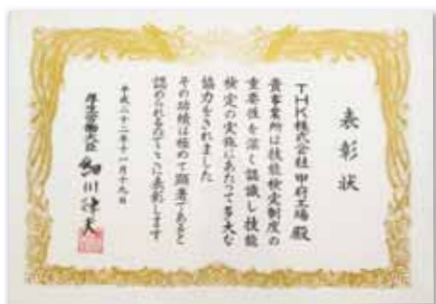 表彰状
THK株式会社 甲府工場 殿
貴事業所は技能検定制度の
重要性を深く認識し技能
検定の実施にあたって多大な
協力をされました
その功績は極めて顕著であると
認められるのでここに表彰します
平成二十二年十一月十九日
厚生労働大臣 細川律夫